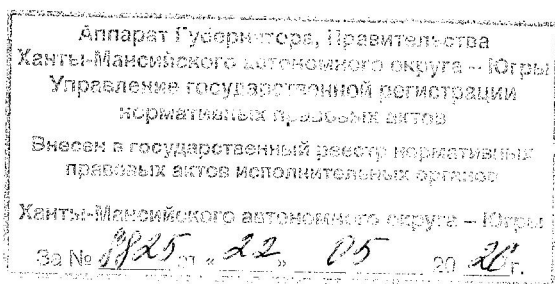 Аппарат Губернатора, Правительства
Ханты-Мансийского автономного округа – Югры
Управление государственной регистрации
нормативных правовых актов
Внесен в государственный реестр нормативных
правовых актов исполнительных органов
Ханты-Мансийского автономного округа – Югры
За № от « 22 » 05 20 20 г.